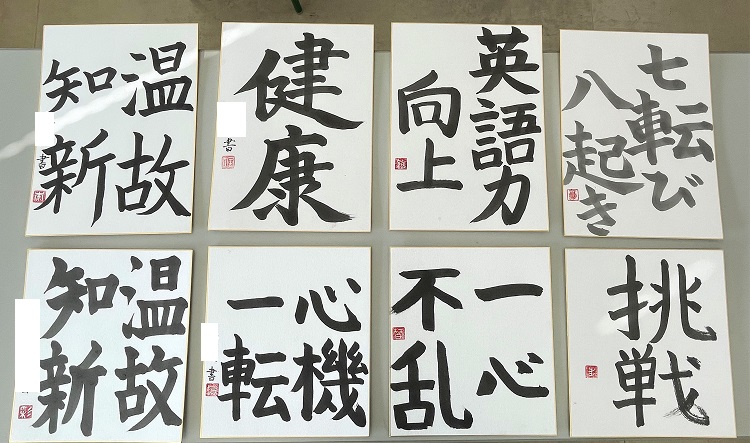 温故
知新
書
健康
書
英語力
向上
七転び
八起き
温故
知新
心機
一転
書
一心
不乱
挑戦